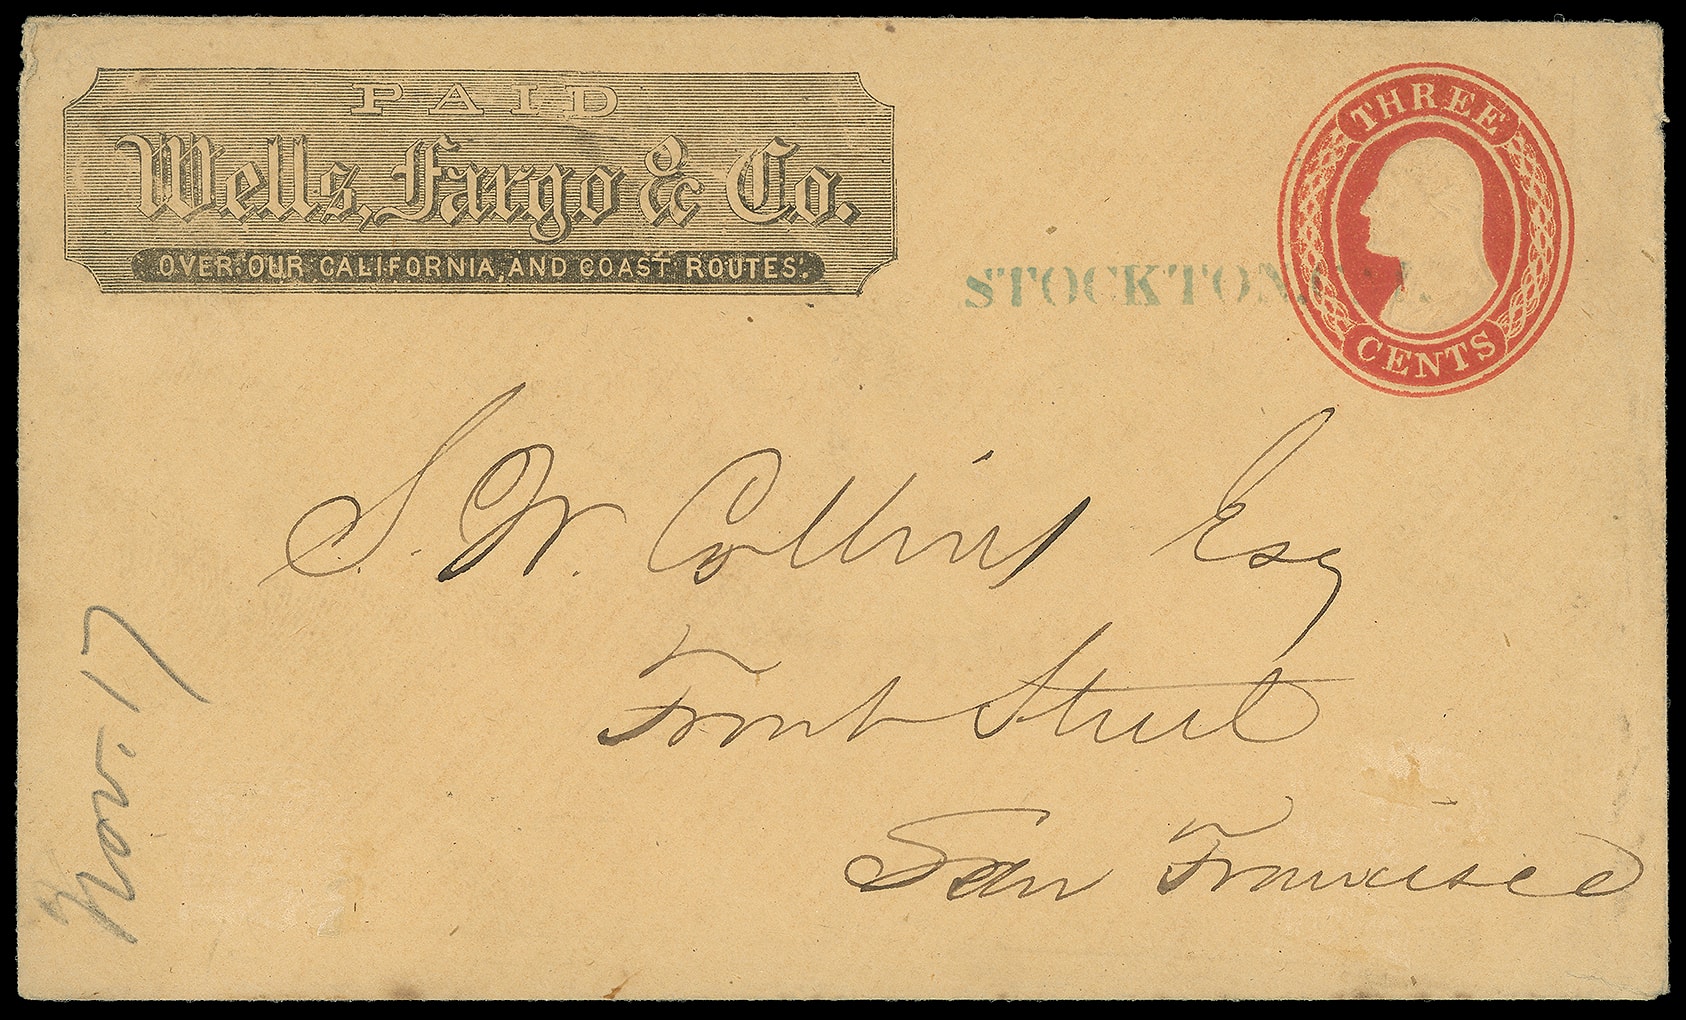 PAID
Wells, Fargo & Co.
OVER OUR CALIFORNIA AND COAST ROUTES.
THREE
CENTS
STOCKTON, CAL.
S. W. Collins Esq
Front Street
San Francisco
Nov. 17